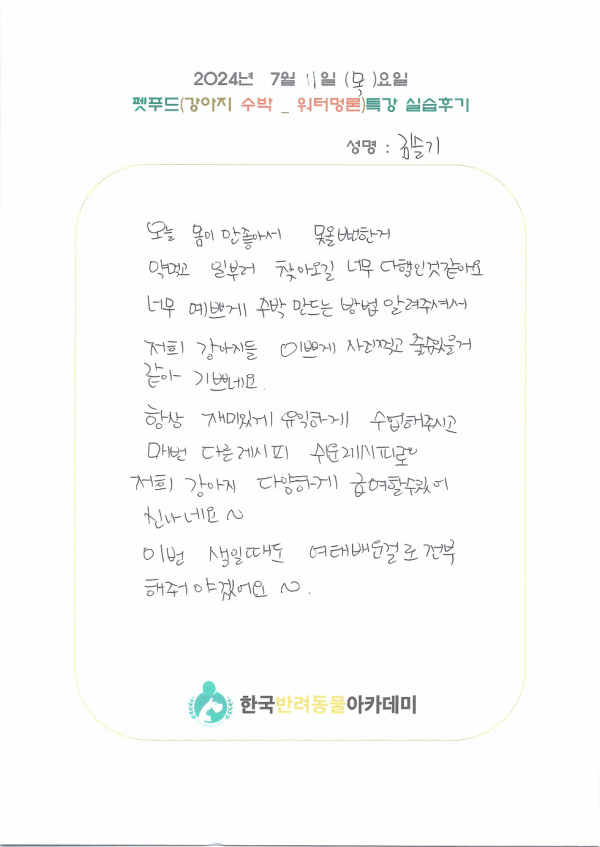 2024년 7월 11일 (목)요일
펫푸드(강아지 수박 _ 워터멍론)특강 실습후기
성명 : 김슬기
오늘 몸이 안좋아서 못올뻔한거
약먹고 일부러 찾아오길 너무 다행인것같아요
너무 예쁘게 수박 만드는 방법 알려주셔서
저희 강아지들 이쁘게 사진찍고 줄수있을거
같아 기쁘네요.
항상 재미있게 유익하게 수업해주시고
매번 다른레시피 쉬운레시피로
저희 강아지 다양하게 급여할수있어
신나네요~
이번 생일때도 여태배운걸로 전부
해줘야겠어요~.
한국반려동물아카데미